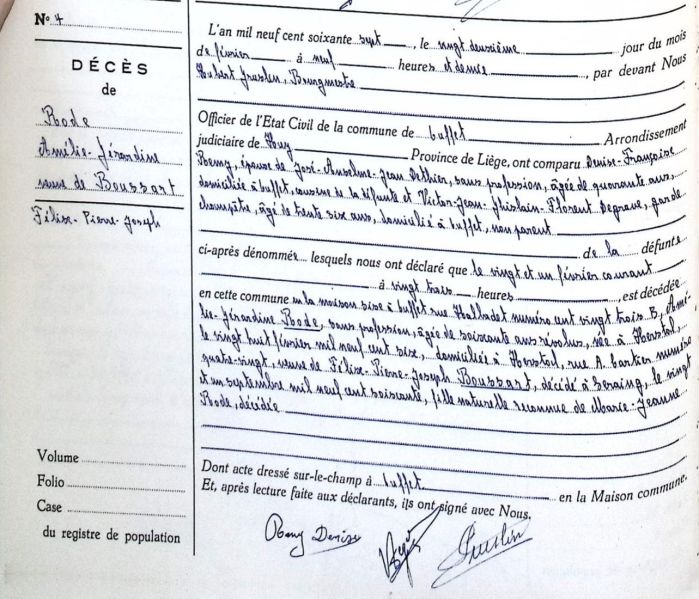 N° 4
DÉCÈS
de
Rode
Amélie-Gérardine
veuve de Boussart
Félix-Pierre-Joseph
Volume
Folio
Case
du registre de population
L'an mil neuf cent soixante sept, le vingt deuxième jour du mois
de février à neuf heures et demie, par devant Nous
Hubert Bourgmestre
Officier de l'Etat Civil de la commune de Buffet Arrondissement
judiciaire de Huy Province de Liège, ont comparu Denise-Françoise
Remy, épouse de José-Anselme-Jean Dethier, sans profession, âgée de quarante ans,
domiciliée à Buffet, cousine de la défunte et Victor-Jean-Ghislain-Florent Degrave, garde
champêtre, âgé de trente six ans, domicilié à Buffet, non parent
de la défunte
ci-après dénommée lesquels nous ont déclaré que le vingt et un février courant
à vingt trois heures, est décédée
en cette commune en la maison sise à Buffet rue Malbadet numéro cent vingt trois B, Amé-
lie-Gérardine Rode, sans profession, âgée de soixante ans révolus, née à Herstal,
le vingt huit février mil neuf cent six, domiciliée à Herstal, rue A. Cartier numéro
quatre-vingt, veuve de Félix-Pierre-Joseph Boussart, décédé à Seraing, le vingt
et un septembre mil neuf cent soixante, fille naturelle reconnue de Marie-Jeanne
Rode, décédée
Dont acte dressé sur-le-champ à Buffet en la Maison commune.
Et, après lecture faite aux déclarants, ils ont signé avec Nous.
Remy Denise